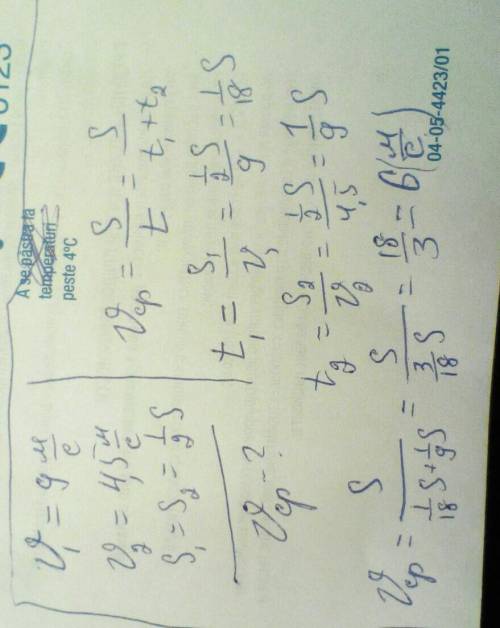 0123
A se păstra la
temperaturi
peste 4°C
υ₁ = 9 м/с
υ₂ = 4,5 м/с
S₁ = S₂ = 1/2 S
υср - ?
υср = S/t = S/(t₁ + t₂)
t₁ = S₁/υ₁ = (1/2 S)/9 = 1/18 S
t₂ = S₂/υ₂ = (1/2 S)/4,5 = 1/9 S
υср = S/(1/18 S + 1/9 S) = S/(3/18 S) = 18/3 = 6 (м/с)
04-05-4423/01